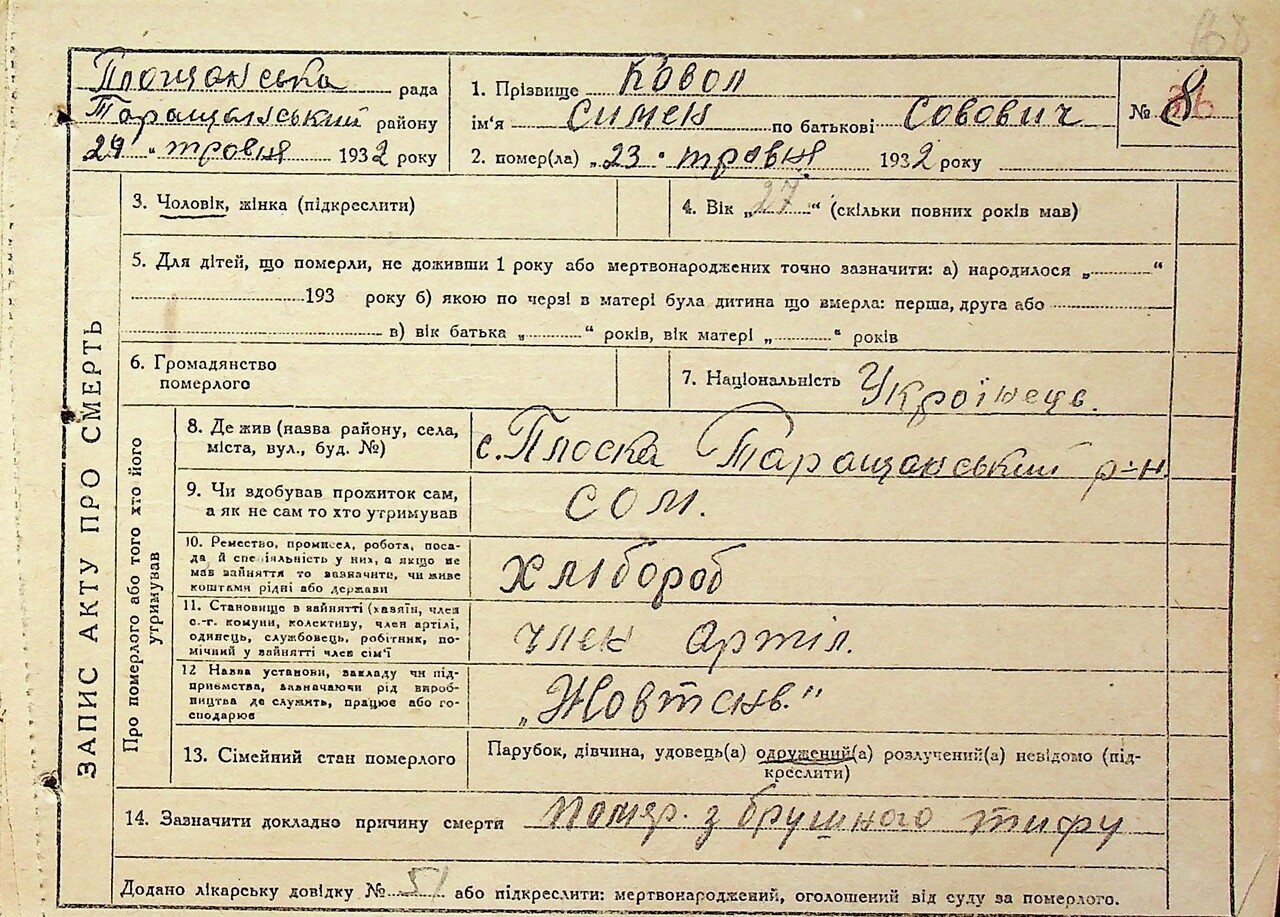 Площанська рада
Таращанський району
24 " травня 1932 року
1. Прізвище Ковол
ім'я Симен по батькові Совович
№ 8
2. помер(ла) „ 23 " травня 1932 року
ЗАПИС АКТУ ПРО СМЕРТЬ
3. Чоловік, жінка (підкреслити)
4. Вік „ 27 “ (скільки повних років мав)
5. Для дітей, що померли, не доживши 1 року або мертвонароджених точно зазначити: а) народилося „ “
193 року б) якою по черзі в матері була дитина що вмерла: перша, друга або
в) вік батька „ “ років, вік матері „ “ років
6. Громадянство
померлого
7. Національність Українець.
Про померлого або того хто його
утримував
8. Де жив (назва району, села,
міста, вул., буд. №)
с. Плоска Таращанський р-н.
9. Чи здобував прожиток сам,
а як не сам то хто утримував
сом.
10. Ремество, промисел, робота, поса-
да й спеціяльність у них, а якщо не
мав зайняття то зазначити, чи живе
коштами рідні або держави
хлібороб
11. Становище в зайнятті (хазяїн, член
с.-г. комуни, колективу, член артілі,
одинець, службовець, робітник, по-
мічний у зайнятті член сім'ї
член артіл.
12 Назва установи, закладу чи під-
приємства, зазначаючи рід вироб-
ництва де служить, працює або го-
сподарює
„Жовтень."
13. Сімейний стан померлого
Парубок, дівчина, удовець(а) одружений(а) розлучений(а) невідомо (під-
креслити)
14. Зазначити докладно причину смерти помер. з брушного тифу
Додано лікарську довідку № 51 або підкреслити: мертвонароджений, оголошений від суду за померлого.